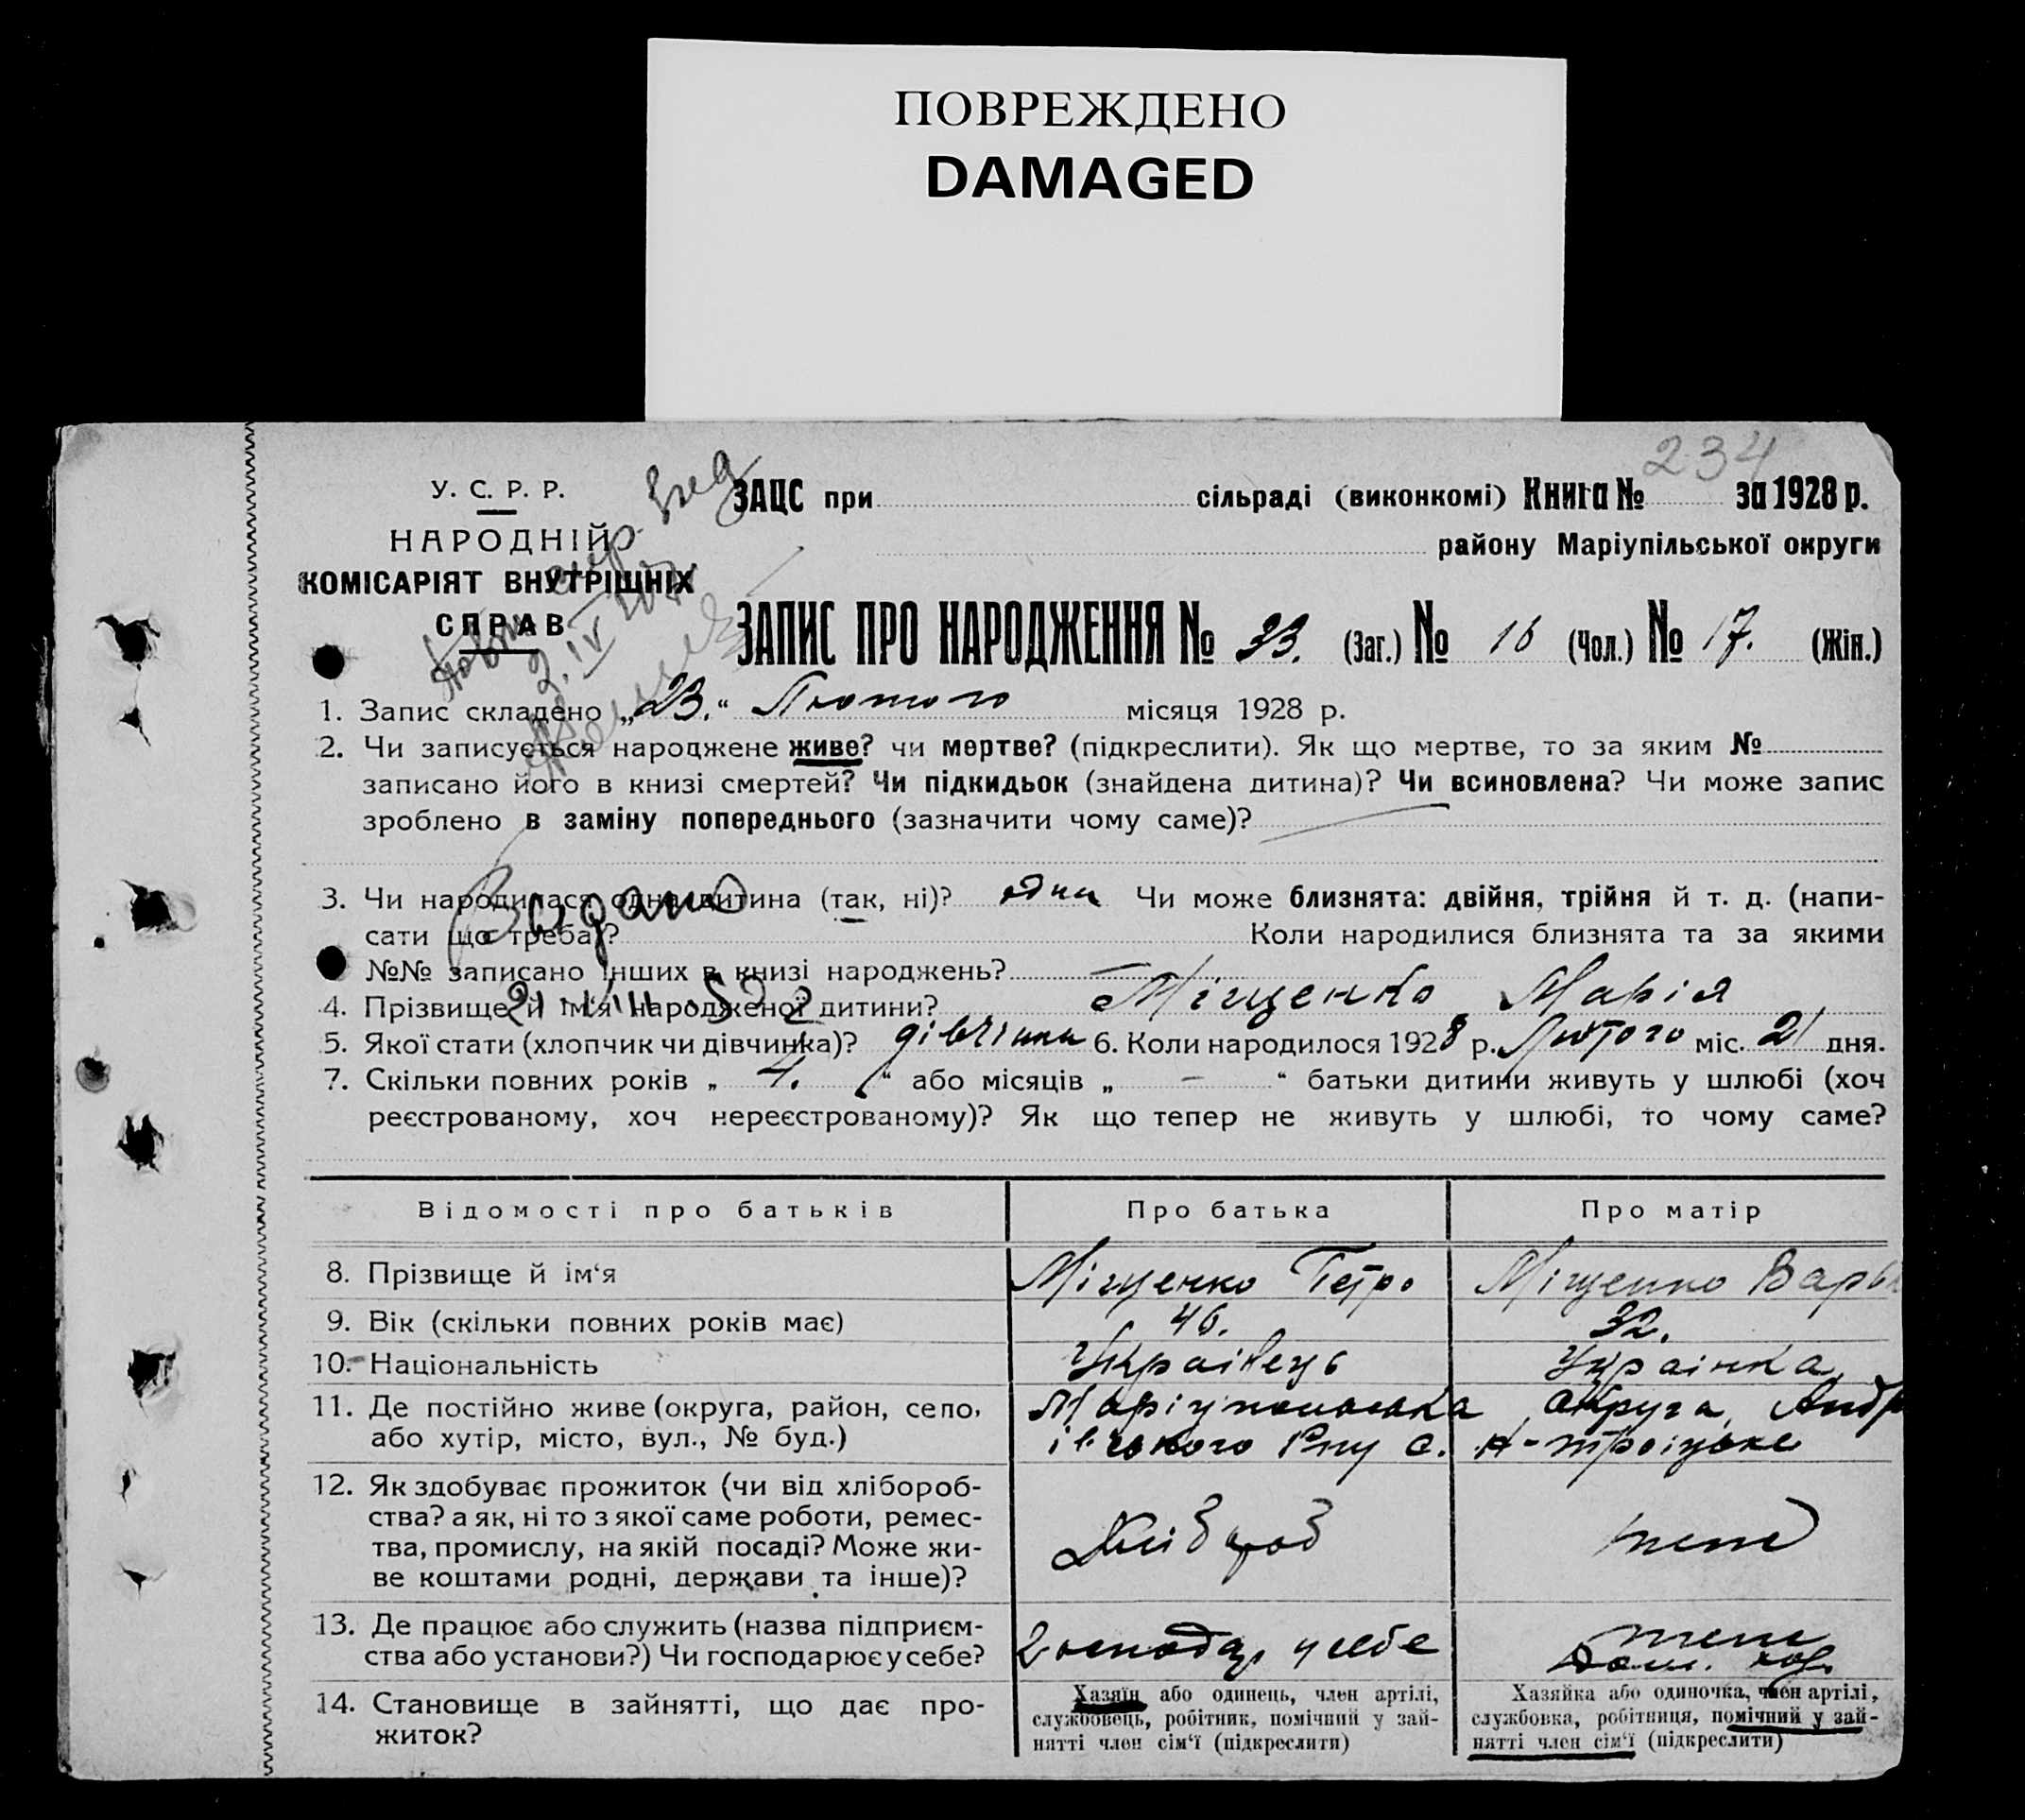 ПОВРЕЖДЕНО
DAMAGED
234
У. С. Р. Р.
НАРОДНІЙ
КОМІСАРІЯТ ВНУТРІШНІХ
СПРАВ
ЗАЦС при сільраді (виконкомі) Книга № за 1928 р.
району Маріупільської округи
ЗАПИС ПРО НАРОДЖЕННЯ № 33. (Заг.) № 16 (Чол.) № 17. (Жін.)
1. Запис складено „23.“ Лютого місяця 1928 р.
2. Чи записується народжене живе? чи мертве? (підкреслити). Як що мертве, то за яким №
записано його в книзі смертей? Чи підкидьок (знайдена дитина)? Чи всиновлена? Чи може запис
зроблено в заміну попереднього (зазначити чому саме)?
Видано
3. Чи народилася одна дитина (так, ні)? одна Чи може близнята: двійня, трійня й т. д. (напи-
сати що треба)? Коли народилися близнята та за якими
№№ записано інших в книзі народжень?
4. Прізвище й ім'я народженої дитини? Міщенко Марія
5. Якої стати (хлопчик чи дівчинка)? дівчинка 6. Коли народилося 1928 р. Лютого міс. 21 дня.
7. Скільки повних років „ 4. “ або місяців „ - “ батьки дитини живуть у шлюбі (хоч
реєстрованому, хоч нереєстрованому)? Як що тепер не живуть у шлюбі, то чому саме?
Відомості про батьків Про батька Про матір
8. Прізвище й ім'я Міщенко Петро Міщенко
9. Вік (скільки повних років має) 46. 32.
10. Національність Українець Українка
11. Де постійно живе (округа, район, село, Маріупольська округа, Андр
або хутір, місто, вул., № буд.) івського Р-ну с. Н-Троіцьке
12. Як здобуває прожиток (чи від хлібороб-
ства? а як, ні то з якої саме роботи, ремес-
тва, промислу, на якій посаді? Може жи-
ве коштами родні, держави та інше)?
Хлібороб
13. Де працює або служить (назва підприєм-
ства або установи?) Чи господарює у себе? господар у себе
14. Становище в зайнятті, що дає про-
житок?
Хазяїн або одинець, член артілі,
службовець, робітник, помічний у зай-
нятті член сім'ї (підкреслити)
Хазяйка або одиночка, член артілі,
службовка, робітниця, помічний у зай-
нятті член сім'ї (підкреслити)